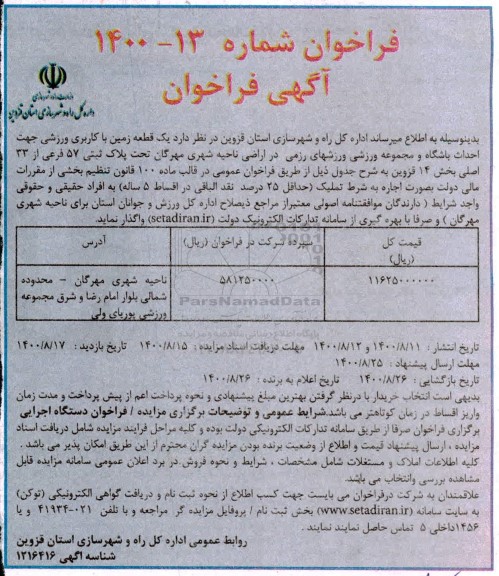 فراخوان شماره ۱۳- ۱۴۰۰
آگهی فراخوان
وزارت راه و شهرسازی
اداره کل راه و شهرسازی استان قزوین
بدینوسیله به اطلاع میرساند اداره کل راه و شهرسازی استان قزوین در نظر دارد یک قطعه زمین با کاربری ورزشی جهت
احداث باشگاه و مجموعه ورزشی ورزشهای رزمی در اراضی ناحیه شهری مهرگان تحت پلاک ثبتی ۵۷ فرعی از ۳۳
اصلی بخش ۱۴ قزوین به شرح جدول ذیل از طریق فراخوان عمومی در قالب ماده ۱۰۰ قانون تنظیم بخشی از مقررات
مالی دولت بصورت اجاره به شرط تملیک (حداقل ۲۵ درصد نقد الباقی در اقساط ۵ ساله) به افراد حقیقی و حقوقی
واجد شرایط ( دارندگان موافقتنامه اصولی معتبراز مراجع ذیصلاح اداره کل ورزش و جوانان استان برای ناحیه شهری
مهرگان ) و صرفا با بهره گیری از سامانه تدارکات الکترونیک دولت (setadiran.ir) واگذار نماید.
قیمت کل (ریال) سپرده شرکت در فراخوان (ریال) آدرس
۱۱۶۲۵۰۰۰۰۰۰ ۵۸۱۲۵۰۰۰۰ ناحیه شهری مهرگان – محدوده
شمالی بلوار امام رضا و شرق مجموعه
ورزشی پوریای ولی
ParsNamadData
پایگاه اطلاع رسانی مناقصه و مزایده
تاریخ انتشار : ۱۴۰۰/۸/۱۱ و ۱۴۰۰/۸/۱۲ مهلت دریافت اسناد مزایده : ۱۴۰۰/۸/۱۵ تاریخ بازدید : ۱۴۰۰/۸/۱۷
مهلت ارسال پیشنهاد : ۱۴۰۰/۸/۲۵
تاریخ بازگشایی : ۱۴۰۰/۸/۲۶ تاریخ اعلام به برنده : ۱۴۰۰/۸/۲۶
بدیهی است انتخاب خریدار با درنظر گرفتن بهترین مبلغ پیشنهادی و نحوه پرداخت اعم از پیش پرداخت و مدت زمان
واریز اقساط در زمان کوتاهتر می باشد.شرایط عمومی و توضیحات برگزاری مزایده / فراخوان دستگاه اجرایی
برگزاری فراخوان صرفا از طریق سامانه تدارکات الکترونیکی دولت بوده و کلیه مراحل فرایند مزایده شامل دریافت اسناد
مزایده ، ارسال پیشنهاد قیمت و اطلاع از وضعیت برنده بودن مزایده گران محترم از این طریق امکان پذیر می باشد .
کلیه اطلاعات املاک و مستغلات شامل مشخصات ، شرایط و نحوه فروش در برد اعلان عمومی سامانه مزایده قابل
مشاهده بررسی وانتخاب می باشد.
علاقمندان به شرکت درفراخوان می بایست جهت کسب اطلاع از نحوه ثبت نام و دریافت گواهی الکترونیکی (توکن)
به سایت سامانه (www.setadiran.ir) بخش ثبت نام / پروفایل مزایده گر مراجعه و با تلفن ۰۲۱-۴۱۹۳۴ و یا
۱۴۵۶داخلی ۵ تماس حاصل نمایند نمایند .
روابط عمومی اداره کل راه و شهرسازی استان قزوین
شناسه آگهی ۱۲۱۶۴۱۶